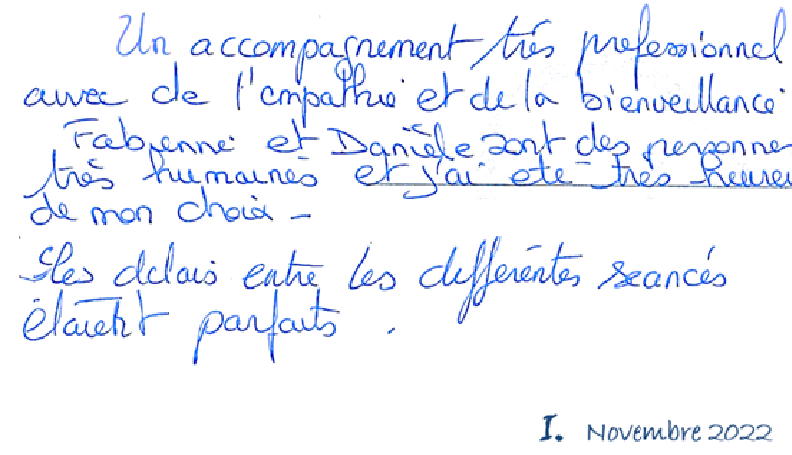 Un accompagnement très professionnel
avec de l'empathie et de la bienveillance.
Fabienne et Danièle sont des personne
très humaines et j'ai été très heureu
de mon choix -
Les délais entre les différentes séances
étaient parfaits .
I. Novembre 2022